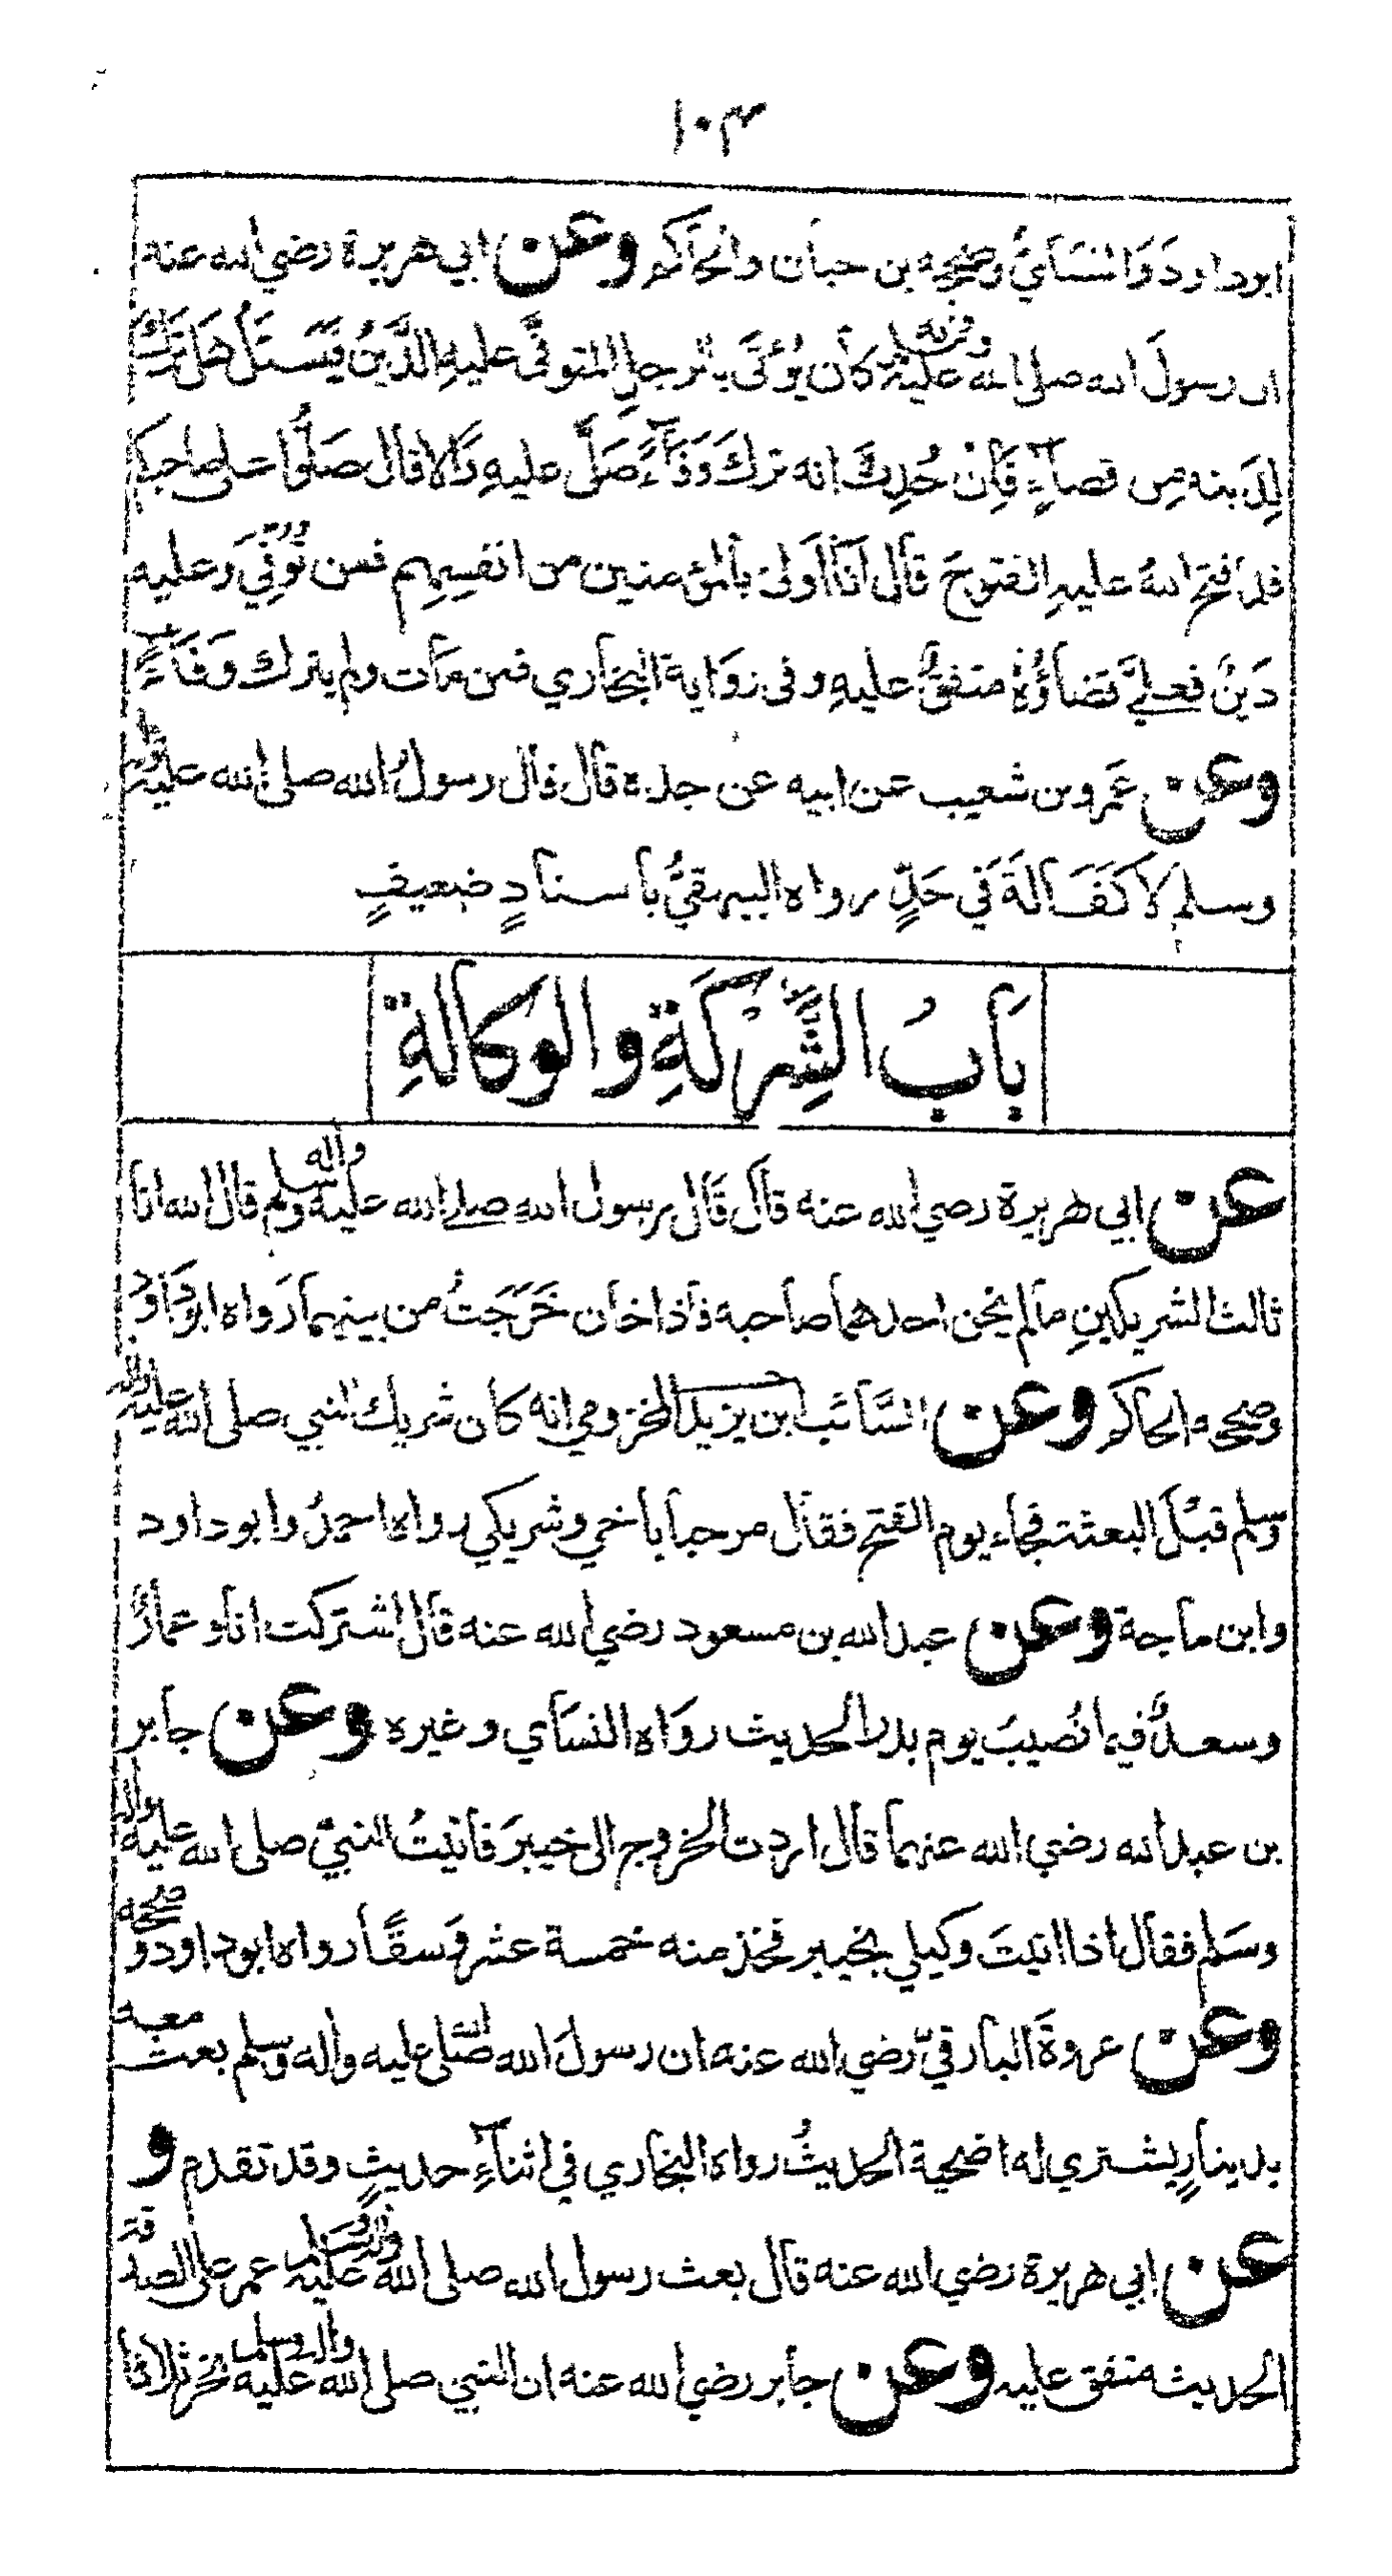 ١٠٣
ابوداودَ وَالنسَائيُّ وصححه بن حبان والحاكم وعن ابي هريرة رضي الله عنه
ان رسولَ الله صلى الله عليه واله وسلم كان يُؤتَى بالرجلِ المتوفَّى عليهِ الدَّينُ فيَسئَلُ هَل تَرَكَ
لِدَينه مِن قضاءٍ فَإِنْ حُدِثَ انه تركَ وَفَاءً صَلَّى عليهِ وَالا قال صَلُّوا على صاحبكم
فلما فتح اللهُ عليهِ الفتوحَ قال اَنَا اَولىٰ بالمؤمنين من انفسِهِم فمن تُوُفِّيَ وعليه
دَينٌ فعليَّ قضاؤُهُ متفقٌ عليهِ وفى رِوَاية البخاري فمن مات ولم يترك وَفَاءً
وعن عَمرو بن شعيب عن ابيه عن جده قال قال رسولُ الله صلى الله عليه واله
وسلم لا كَفَالَةَ في حَدٍّ رواه البيهقيُّ باسنادٍ ضعيفٍ
بَابُ الشِّرْكَةِ والوَكالةِ
عن ابي هريرة رضي الله عنه قال قَال رسول الله صلى الله عليه واله وسلم قال الله انا
ثالث الشريكينِ مالم يخن احدهما صاحبه فاذا خان خَرَجَتُ من بينهما رَواه ابوداودَ
وصححه الحاكم وعن السَّائب ابن يزيد المخزومي انه كان شريك النبي صلى الله عليه واله
وسلم قبْلَ البعثة فجاء يوم الفتح فقال مرحبا باخي وشريكي رواه احمدُ وابوداود
وابن ماجة وعن عبدالله بن مسعود رضي الله عنه قال اشتركت انا وعمارٌ
وسعدٌ فيما نُصيبُ يوم بدر الحديث روَاه النسَاي وغيره وعن جابر
بن عبدالله رضي الله عنهما قال اردت الخروج الى خيبرَ فاتيتُ النبيَّ صلى الله عليه واله
وسَلم فقال اذا اتيتَ وكيلي بخيبر فخذ منه خمسة عشر وَسقًا رواه ابوداود وصححه
وعن عروةَ البارقيِّ رضي الله عنه ان رسولَ الله صلى الله عليه واله وسلم بعث معه
بدينارٍ يشتري له اضحية الحديثُ رواه البخاري في اثناءِ حديثٍ وقد تقدم و
عن ابي هريرة رضي الله عنه قال بعث رسول الله صلى الله عليه واله وسلم عمر على الصدقة
الحديث متفق عليه وعن جابر رضي الله عنه ان النبي صلى الله عليه واله وسلم نحر ثلاثا